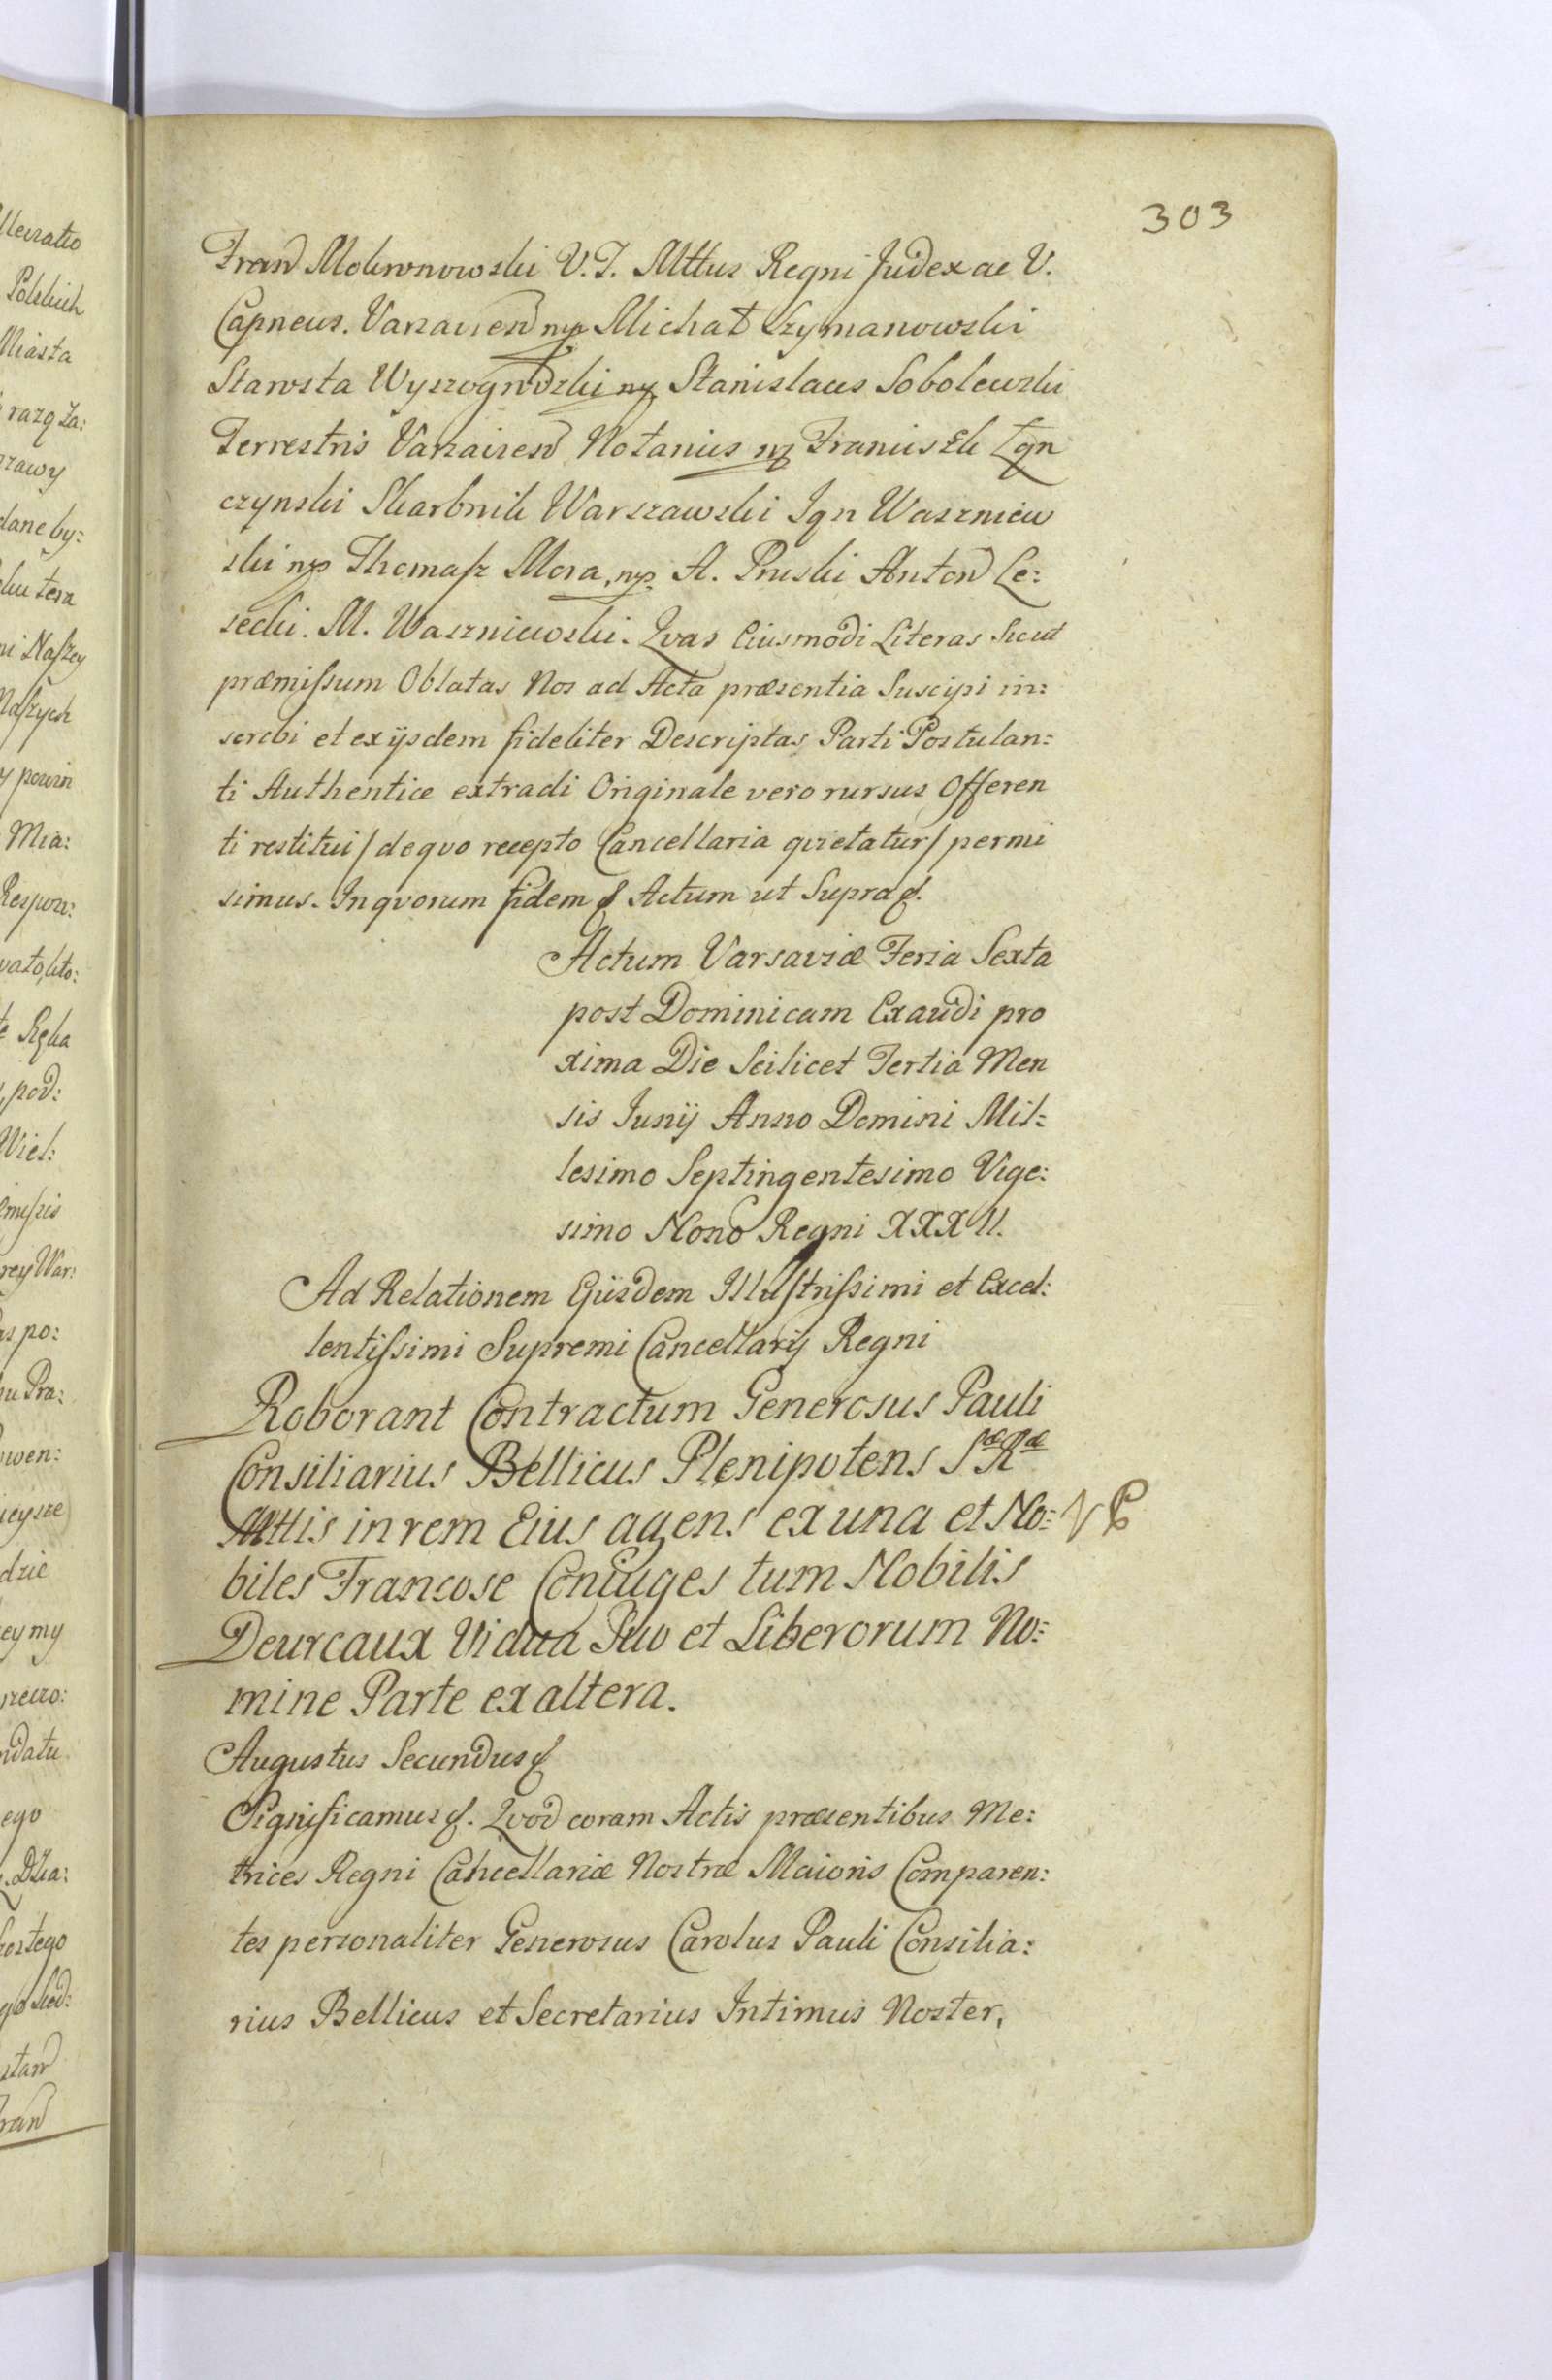 303
Fran Mokronowski V. T. Mttus Regni Judex ac V.
Capneus. Varsavien mp Michał Szymanowski
Starosta Wyszogrodzki mp Stanislaus Sobolewski
Terrestris Varsavien Notarius mp Franciszek Łęn
czynski Skarbnik Warszawski Ign Waszniew
ski mp Thomasz Mora, mp. A. Pruski Anton Le:
secki. M. Waszniewski. Qvas Eiusmodi Literas Sicut
præmissum Oblatas Nos ad Acta præsentia Suscipi in:
scrobi et ex ijsdem fideliter Descriptas Parti Postulan:
ti Authentice extradi Originale vero rursus Offeren
ti restitui / de qvo recepto Cancellaria qvietatur / permi
simus. In qvorum fidem & Actum ut Supra &.
Actum Varsaviæ Feria Sexta
post Dominicam Exaudi pro
xima Die Scilicet Tertia Men
sis Junij Anno Domini Mil:
lesimo Septingentesimo Vige:
simo Nono Regni XXXII.
Ad Relationem Ejusdem Illustrissimi et Excel:
lentissimi Supremi Cancellarij Regni
Roborant Contractum Generosus Pauli
Consiliarius Bellicus Plenipotens Sæ Ræ
Mttis in rem Eius agens ex una et No:
biles Francose Coniuges tum Nobilis
Deurcaux Vidua Suo et Liberorum No:
mine Parte ex altera.
Augustus Secundus &
Significamus &. Qvod coram Actis præsentibus Me:
trices Regni Cancellariæ Nostræ Maioris Comparen:
tes personaliter Generosus Carolus Pauli Consilia:
rius Bellicus et Secretarius Intimus Noster,